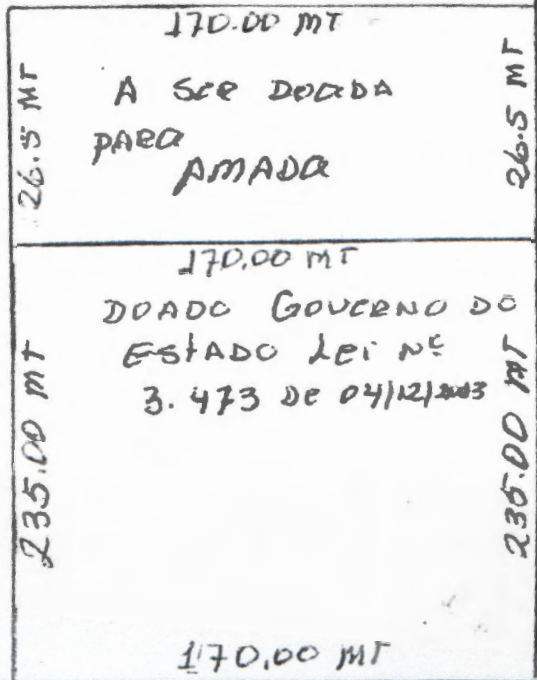 170.00 MT
26.5 MT
A SER DOADA
PARA
AMADA
26.5 MT
170.00 MT
DOADO GOVERNO DO
ESTADO LEI Nº
3.473 DE 04/12/2003
235.00 MT
235.00 MT
170.00 MT